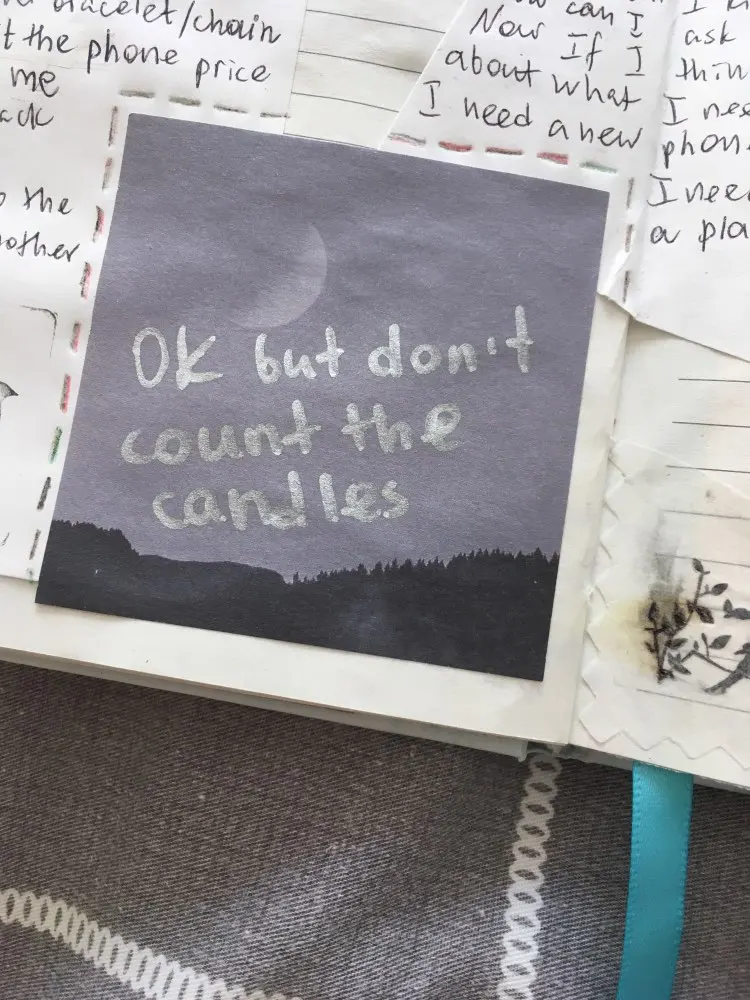 bracelet/chain
t the phone price
me
ack
the
other
can I
Now If I
about what
I need a new
I
ask
thin
I nee
phon
I need
a pla
OK but don't
count the
candles